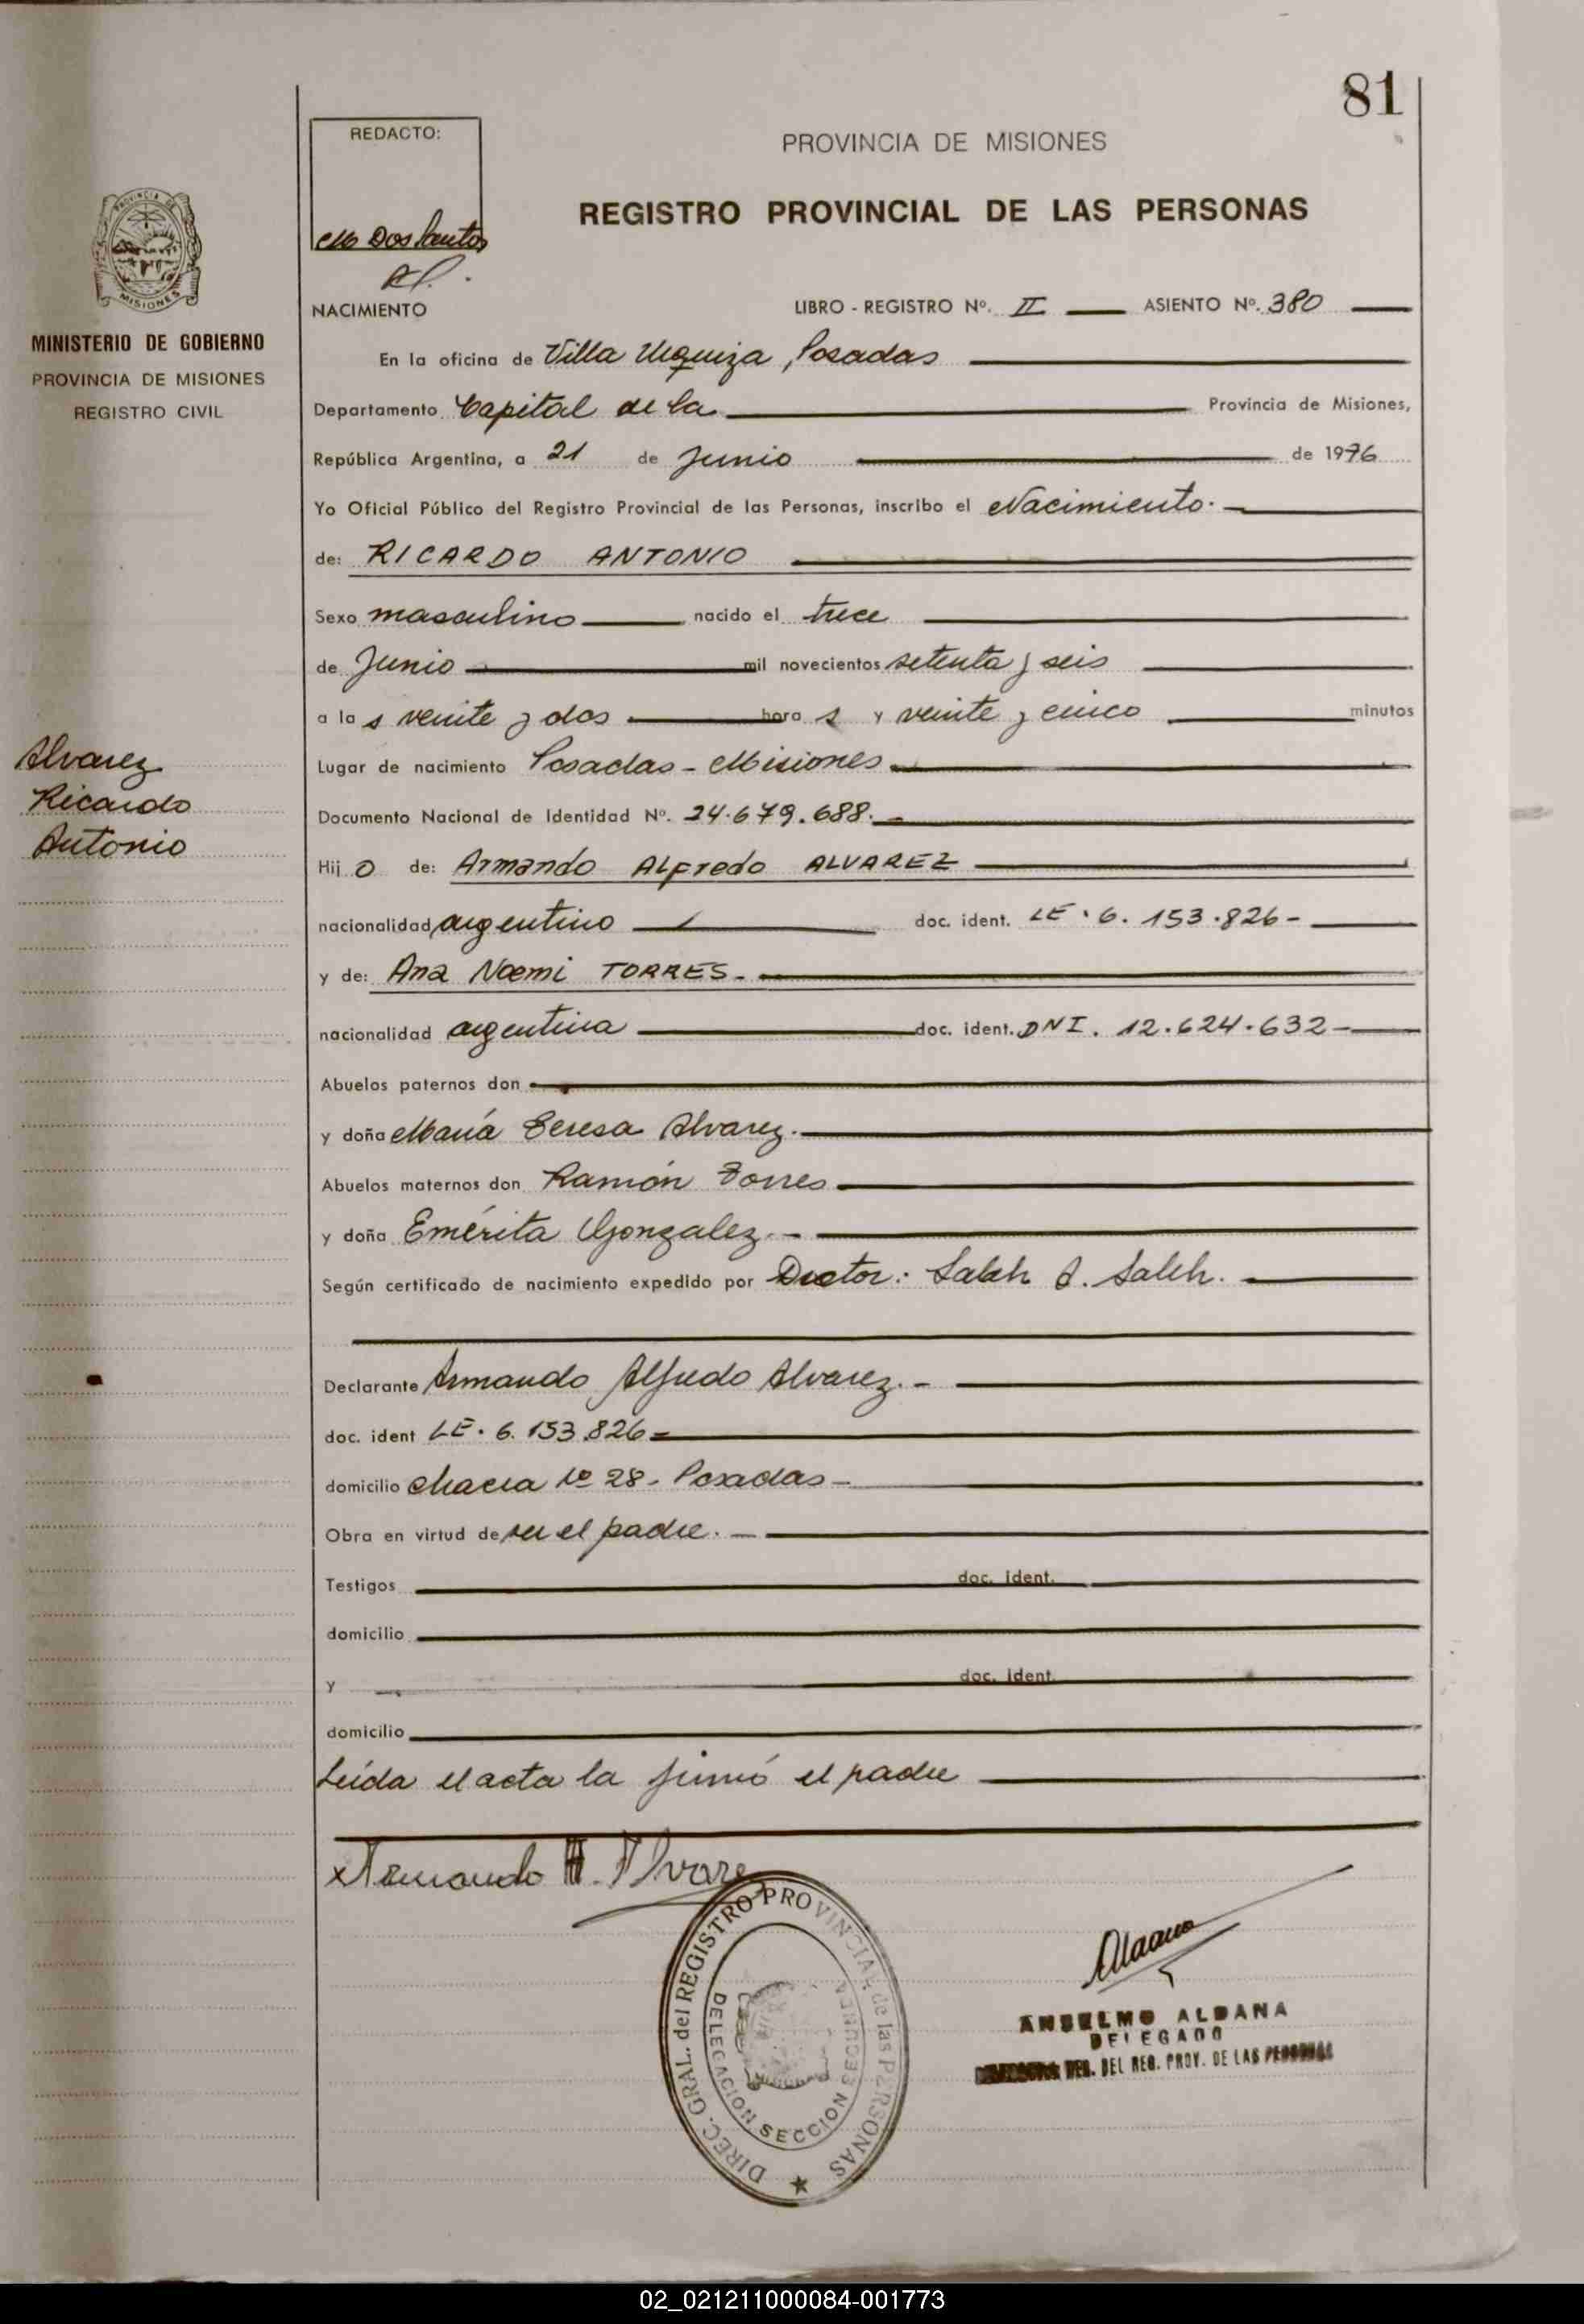 81
REDACTO:
M Dos Santos
PROVINCIA DE MISIONES
REGISTRO PROVINCIAL DE LAS PERSONAS
PROVINCIA DE
MISIONES
MINISTERIO DE GOBIERNO
PROVINCIA DE MISIONES
REGISTRO CIVIL
NACIMIENTO LIBRO - REGISTRO Nº. II ASIENTO Nº. 380
En la oficina de Villa Urquiza, Posadas
Departamento Capital de la Provincia de Misiones,
República Argentina, a 21 de Junio de 1976
Yo Oficial Público del Registro Provincial de las Personas, inscribo el Nacimiento.
de: RICARDO ANTONIO
Sexo masculino nacido el trece
de Junio mil novecientos setenta y seis
a la s veinte y dos hora s y veinte y cinco minutos
Alvarez
Ricardo
Antonio
Lugar de nacimiento Posadas - Misiones
Documento Nacional de Identidad Nº. 24.679.688.
Hij o de: Armando ALFredo ALVAREZ
nacionalidad argentino doc. ident. LE. 6. 153.826-
y de: Ana Noemi TORRES.
nacionalidad argentina doc. ident. DNI. 12.624.632-
Abuelos paternos don
y doña María Teresa Alvarez.
Abuelos maternos don Ramón Torres
y doña Emérita Gonzalez.-
Según certificado de nacimiento expedido por Doctor: Saleh A. Saleh.
Declarante Armando Alfredo Alvarez.-
doc. ident LE. 6. 153.826
domicilio Chacra Nº 28- Posadas-
Obra en virtud de ser el padre.-
Testigos doc. ident.
domicilio
y doc. ident.
domicilio
Leída el acta la firmó el padre
x Armando A. Alvarez
DIREC. GRAL. del REGISTRO PROVINCIAL de las PERSONAS
DELEGACION SECCION
ANSELMO ALDANA
DELEGADO
DEL REG. PROV. DE LAS PERSONAS
02_021211000084-001773